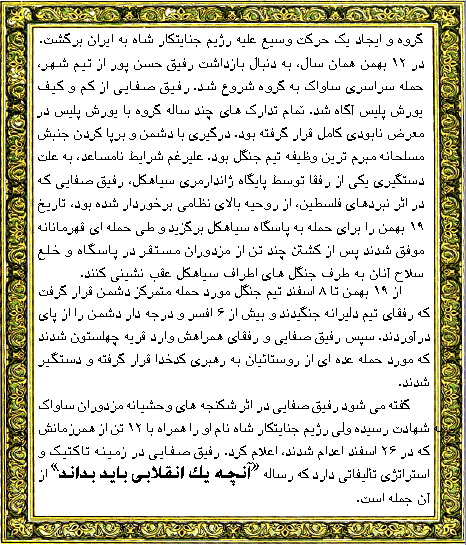 گروه و ایجاد یک حرکت وسیع علیه رژیم جنایتکار شاه به ایران برگشت.
در ۱۲ بهمن همان سال، به دنبال بازداشت رفیق حسن پور از تیم شهر،
حمله سراسری ساواک به گروه شروع شد. رفیق صفایی از کم و کیف
یورش پلیس آگاه شد. تمام تدارک های چند ساله گروه با یورش پلیس در
معرض نابودی کامل قرار گرفته بود. درگیری با دشمن و برپا کردن جنبش
مسلحانه مبرم ترین وظیفه تیم جنگل بود. علیرغم شرایط نامساعد، به علت
دستگیری یکی از رفقا توسط پایگاه ژاندارمری سیاهکل، رفیق صفایی که
در اثر نبردهای فلسطین، از روحیه بالای نظامی برخوردار شده بود، تاریخ
۱۹ بهمن را برای حمله به پاسگاه سیاهکل برگزید و طی حمله ای قهرمانانه
موفق شدند پس از کشتن چند تن از مزدوران مستقر در پاسگاه و خلع
سلاح آنان به طرف جنگل های اطراف سیاهکل عقب نشینی کنند.
از ۱۹ بهمن تا ۸ اسفند تیم جنگل مورد حمله متمرکز دشمن قرار گرفت
که رفقای تیم دلیرانه جنگیدند و بیش از ۶ افسر و درجه دار دشمن را از پای
درآوردند. سپس رفیق صفایی و رفقای همراهش وارد قریه چهلستون شدند
که مورد حمله عده ای از روستائیان به رهبری کدخدا قرار گرفته و دستگیر
شدند.
گفته می شود رفیق صفایی در اثر شکنجه های وحشیانه مزدوران ساواک
به شهادت رسیده ولی رژیم جنایتکار شاه نام او را همراه با ۱۲ تن از همرزمانش
که در ۲۶ اسفند اعدام شدند، اعلام کرد. رفیق صفایی در زمینه تاکتیک و
استراتژی تالیفاتی دارد که رساله «آنچه یك انقلابی باید بداند» از
آن جمله است.